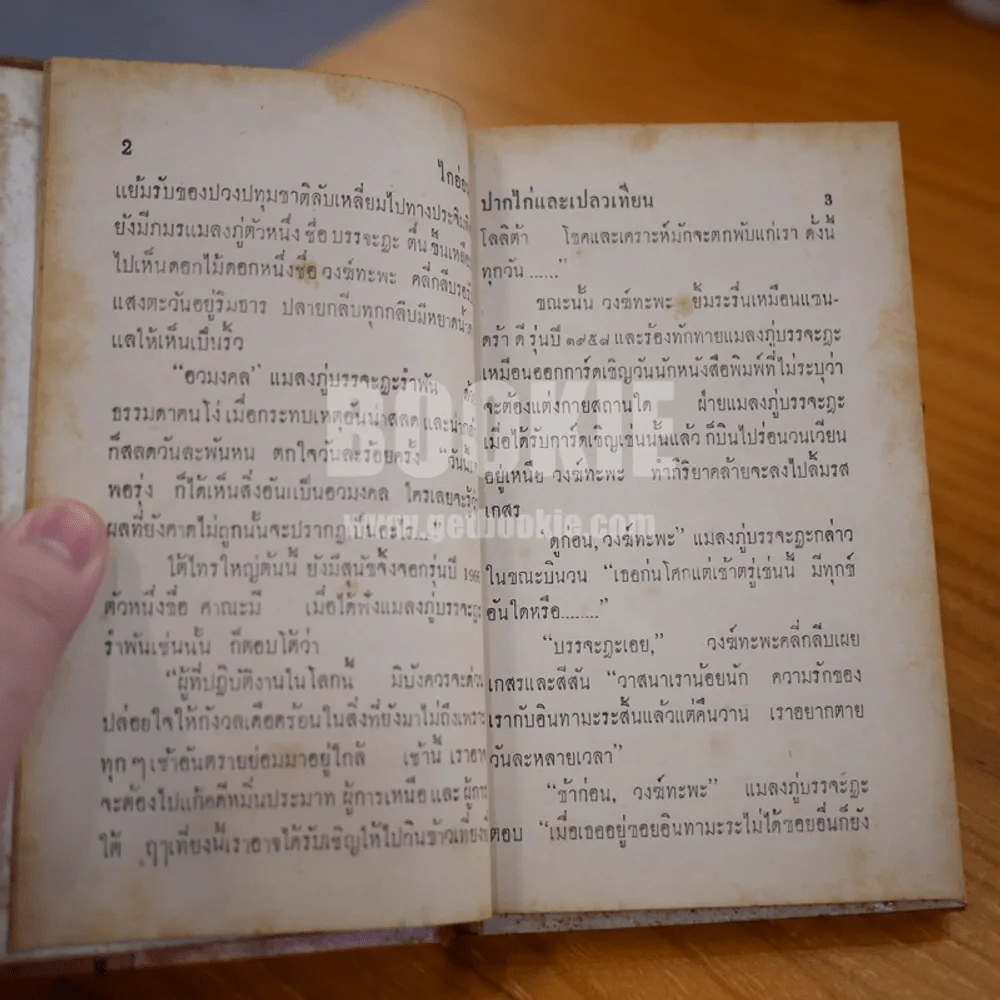 2
ไกอ่อน
แย้มรับของปวงปทุมชาติลับเหลี่ยมไปทางประจิมทิศ
ยังมีภมรแมลงภู่ตัวหนึ่ง ชื่อ บรรจะฎะ ตื่นขึ้นเหลือบ
ไปเห็นดอกไม้ดอกหนึ่งชื่อ วงฆ์ทะพะ คลี่กลีบรอรับ
แสงตะวันอยู่ริมธาร ปลายกลีบทุกกลีบมีหยาดน้ำค้าง
แลให้เห็นเป็นริ้ว
“อวมงคล” แมลงภู่บรรจะฎะรำพัน
ธรรมดาคนโง่ เมื่อกระทบเหตุอันน่าสลด และน่ากลัว
ก็สลดวันละพันหน ตกใจวันละร้อยครั้ง “วันนี้
พอรุ่ง ก็ได้เห็นสิ่งอันเป็นอวมงคล ใครเลยจะรู้
ผลที่ยังคาดไม่ถูกนั้นจะปรากฏเป็นอะไร...”
ใต้ไทรใหญ่ต้นนี้ ยังมีสุนัขจิ้งจอกรุ่นปี 1966
ตัวหนึ่งชื่อ คาณะมี เมื่อได้ฟังแมลงภู่บรรจะฎะ
รำพันเช่นนั้น ก็ตอบโต้ว่า
“ผู้ที่ปฏิบัติงานในโลกนี้ มิบังควรจะด่วน
ปล่อยใจให้กังวลเดือดร้อนในสิ่งที่ยังมาไม่ถึงเพราะ
ทุก ๆ เช้าอันตรายย่อมมาอยู่ใกล้ เช้านี้ เราอาจ
จะต้องไปแก้คดีหมิ่นประมาท ผู้การเหนือ และ ผู้การ
ใต้ ฤๅเที่ยงนี้เราอาจได้รับเชิญให้ไปกินข้าวเที่ยงที่
ปากไก่และเปลวเทียน 3
โลลิต้า โชคและเคราะห์มักจะตกพับแก่เรา ดั่งนี้
ทุกวัน.......”
ขณะนั้น วงฆ์ทะพะ ยิ้มระรื่นเหมือนแซน-
ดร้า ดี รุ่นปี ๑๙๕๘ และร้องทักทายแมลงภู่บรรจะฎะ
เหมือนออกการ์ดเชิญวันนักหนังสือพิมพ์ที่ไม่ระบุว่า
จะต้องแต่งกายสถานใด ฝ่ายแมลงภู่บรรจะฎะ
เมื่อได้รับการ์ดเชิญเช่นนั้นแล้ว ก็บินไปร่อนวนเวียน
อยู่เหนือ วงฆ์ทะพะ ทำกิริยาคล้ายจะลงไปลิ้มรส
เกสร
“ดูก่อน, วงฆ์ทะพะ” แมลงภู่บรรจะฎะกล่าว
ในขณะบินวน “เธอก่นโศกแต่เช้าตรู่เช่นนี้ มีทุกข์
อันใดหรือ........”
“บรรจะฎะเอย,” วงฆ์ทะพะคลี่กลีบเผย
เกสรและสีสัน “วาสนาเราน้อยนัก ความรักของ
เรากับอินทามะระสิ้นแล้วแต่คืนวาน เราอยากตาย
วันละหลายเวลา”
“ช้าก่อน, วงฆ์ทะพะ” แมลงภู่บรรจะฎะ
ตอบ “เมื่อเธออยู่ซอยอินทามะระไม่ได้ซอยอื่นก็ยัง
BOOKIE
www.getbookie.com